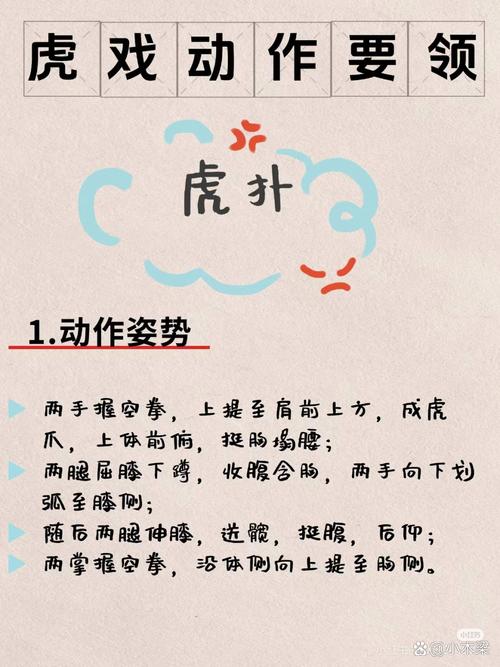 虎戏动作要领
虎扑
1.动作姿势
两手握空拳，上提至肩前上方，成虎
爪，上体前俯，挺胸塌腰；
两腿屈膝下蹲，收腹含胸，两手向下划
弧至膝侧；
随后两腿伸膝，送髋，挺腹，后仰；
两掌握空拳，沿体侧向上提至胸侧。
小红书
@小木梁